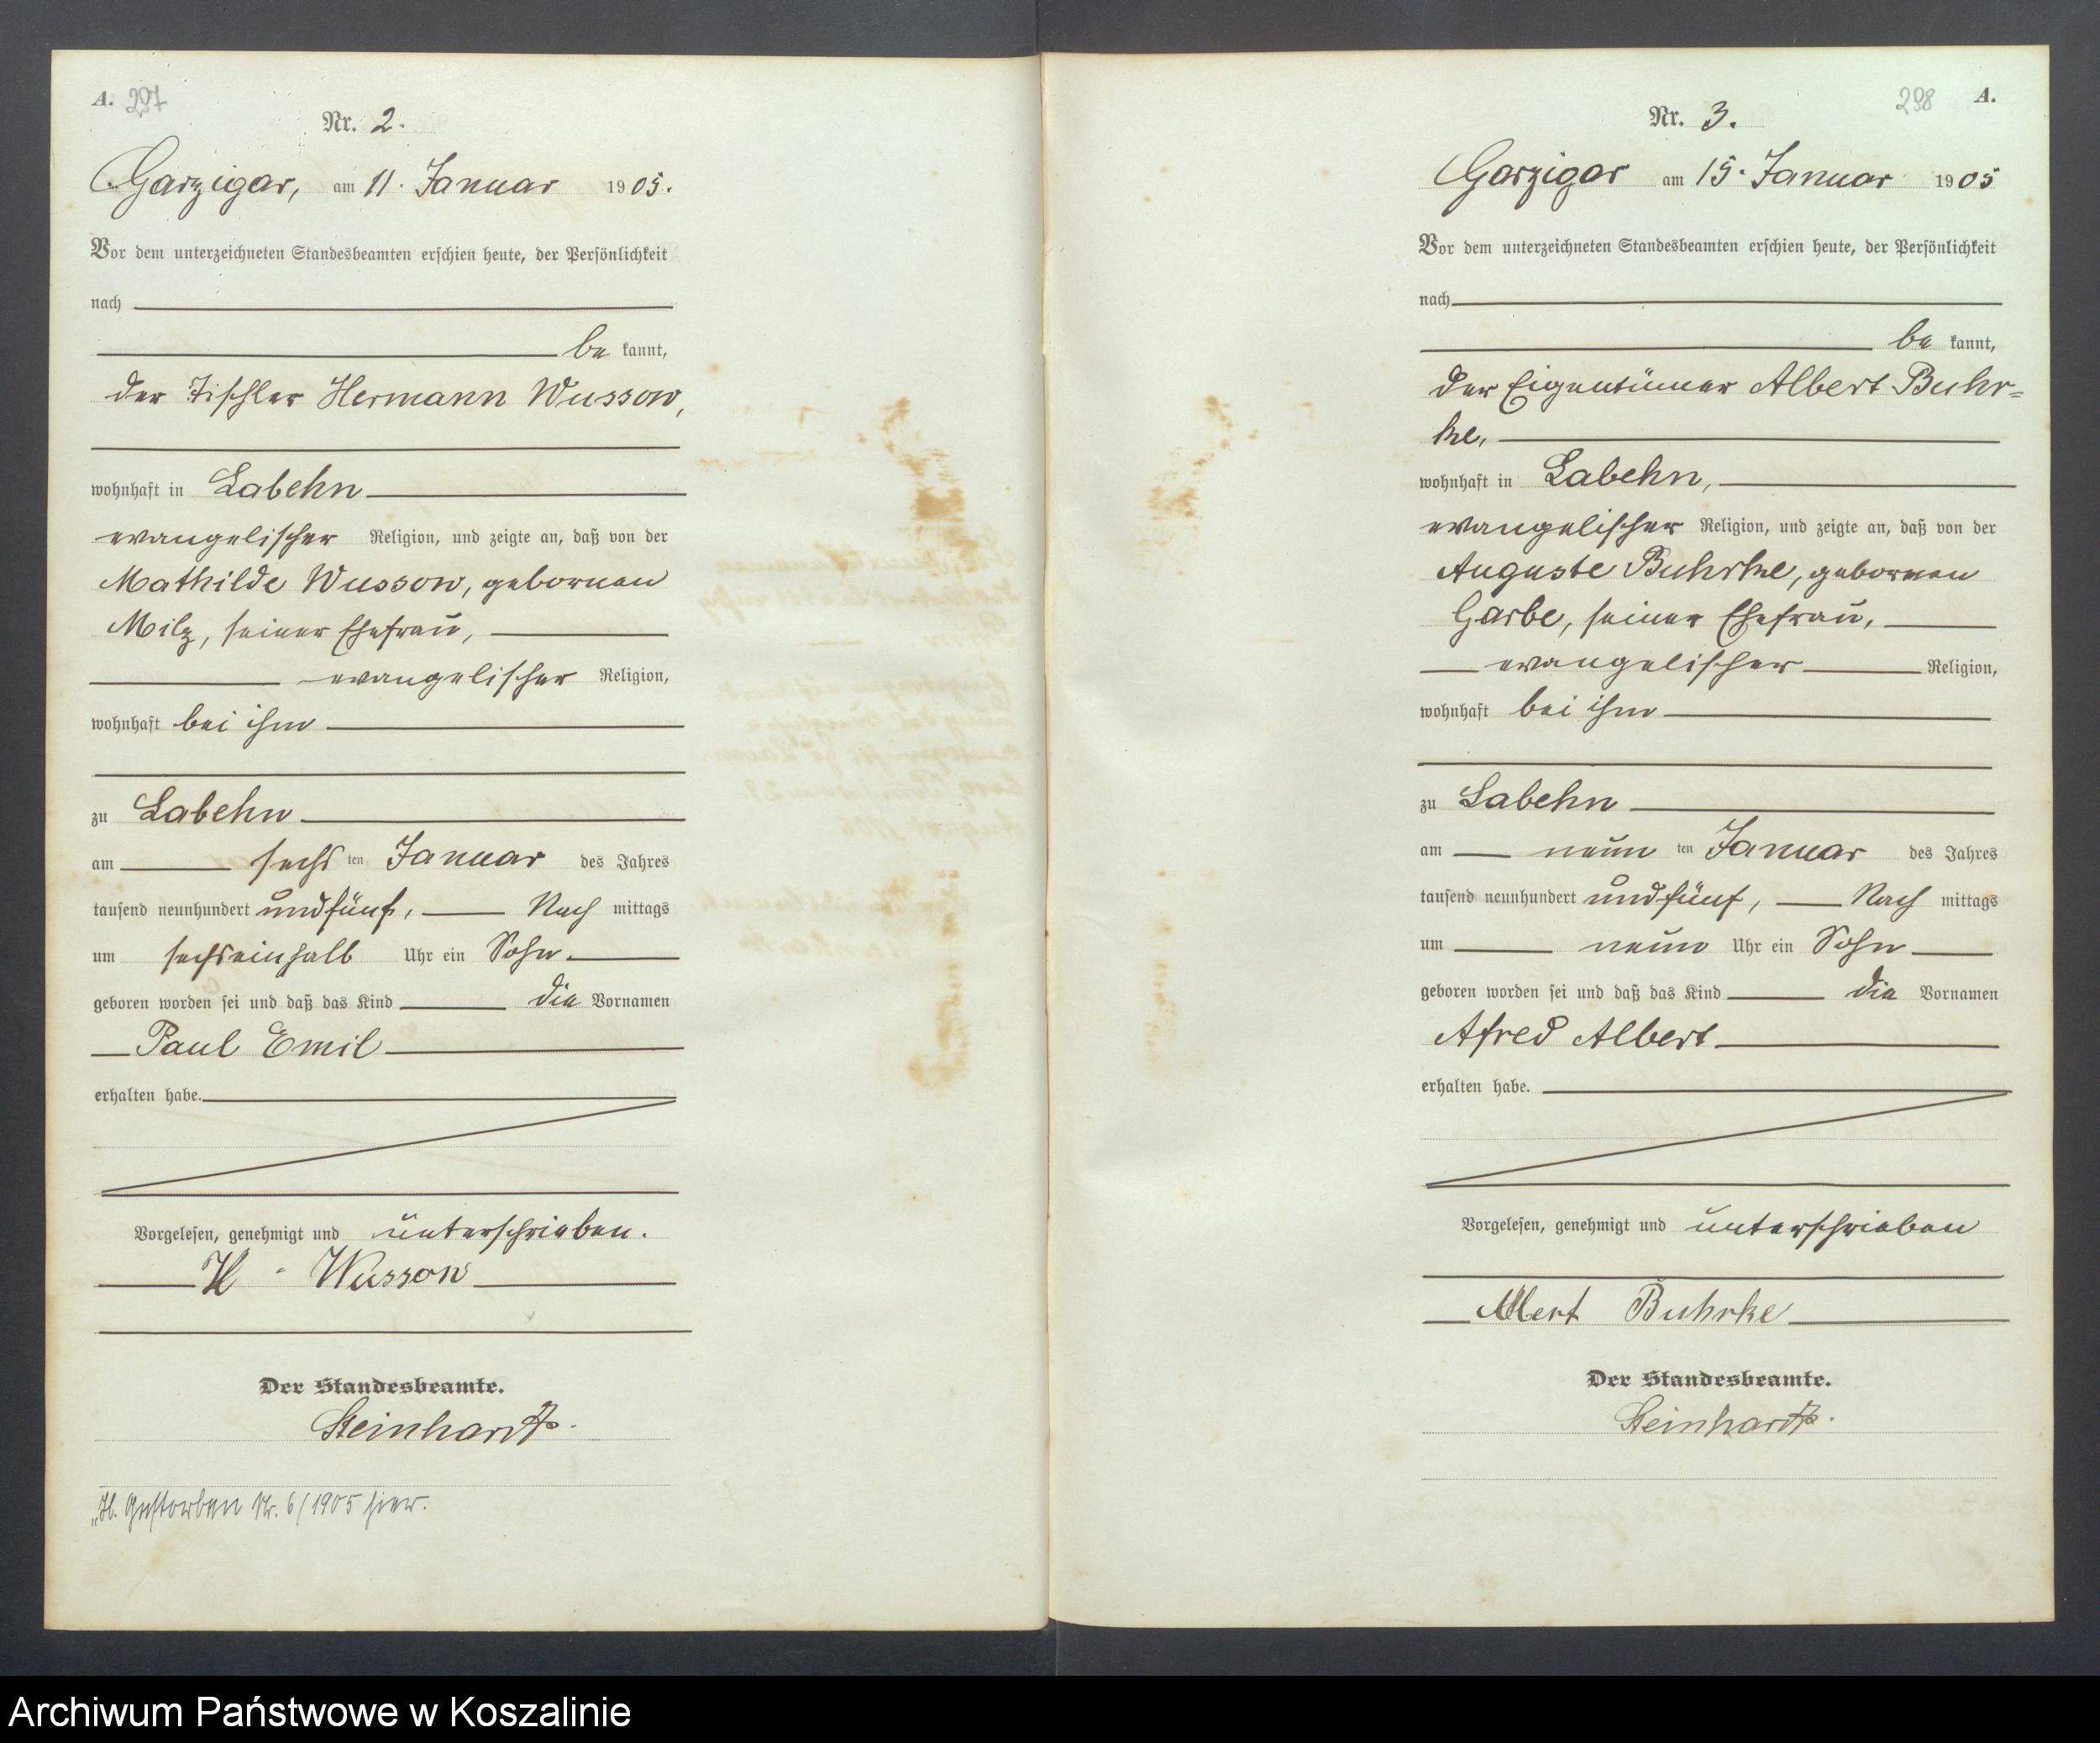 A. 297
Nr. 2.
Garzigar, am 11. Januar 1905.
Vor dem unterzeichneten Standesbeamten erschien heute, der Persönlichkeit
nach
be kannt,
der Tischler Hermann Wussow,
wohnhaft in Labehn
evangelischer Religion, und zeigte an, daß von der
Mathilde Wussow, gebornen
Milz, seiner Ehefrau,
evangelischer Religion,
wohnhaft bei ihm
zu Labehn
am sechs ten Januar des Jahres
tausend neunhundert undfünf, Nach mittags
um sechseinhalb Uhr ein Sohn
geboren worden sei und daß das Kind die Vornamen
Paul Emil
erhalten habe.
Vorgelesen, genehmigt und unterschrieben.
H. Wussow
Der Standesbeamte.
Steinhardt.
Gestorben Nr. 6/1905 hier.
298 A.
Nr. 3.
Garzigar am 15. Januar 1905
Vor dem unterzeichneten Standesbeamten erschien heute, der Persönlichkeit
nach
be kannt,
der Eigentümer Albert Buhr=
ke,
wohnhaft in Labehn,
evangelischer Religion, und zeigte an, daß von der
Auguste Buhrke, gebornen
Garbe, seiner Ehefrau,
evangelischer Religion,
wohnhaft bei ihm
zu Labehn
am neun ten Januar des Jahres
tausend neunhundert undfünf, Nach mittags
um neun Uhr ein Sohn
geboren worden sei und daß das Kind die Vornamen
Afred Albert
erhalten habe.
Vorgelesen, genehmigt und unterschrieben
Albert Buhrke
Der Standesbeamte.
Steinhardt.
Archiwum Państwowe w Koszalinie